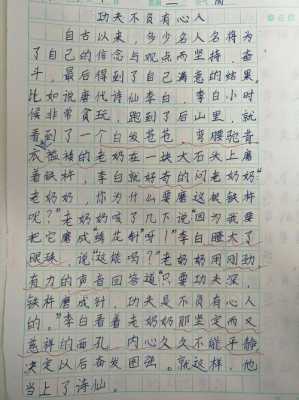 功夫不负有心人
自古以来,多少名人名将为
了自己的信念与观点而坚持,奋
斗,最后得到了自己满意的结果。
比如说唐代诗仙李白,李白小时
候非常贪玩,跑到了后山里,就
看到了一个白发苍苍,弯腰驼背
衣衫褴褛的老奶在一块大石头上磨
着铁杵,李白就好奇的问老奶奶“
老奶奶,你为什么要磨这根铁杵
呢?”老奶奶咳了几下说“因为我要
把它磨成“绣花针”呀!”李白瞪大了
眼珠,说“这能吗?”老奶奶用刚劲
有力的声音回答道“只要功夫深,
铁杵磨成针,功夫是不负有心人
的。”李白看着老奶奶那坚定而又
慈祥的面孔,内心久久不能平静
决定以后奋发图强。就这样,他
当上了诗仙。